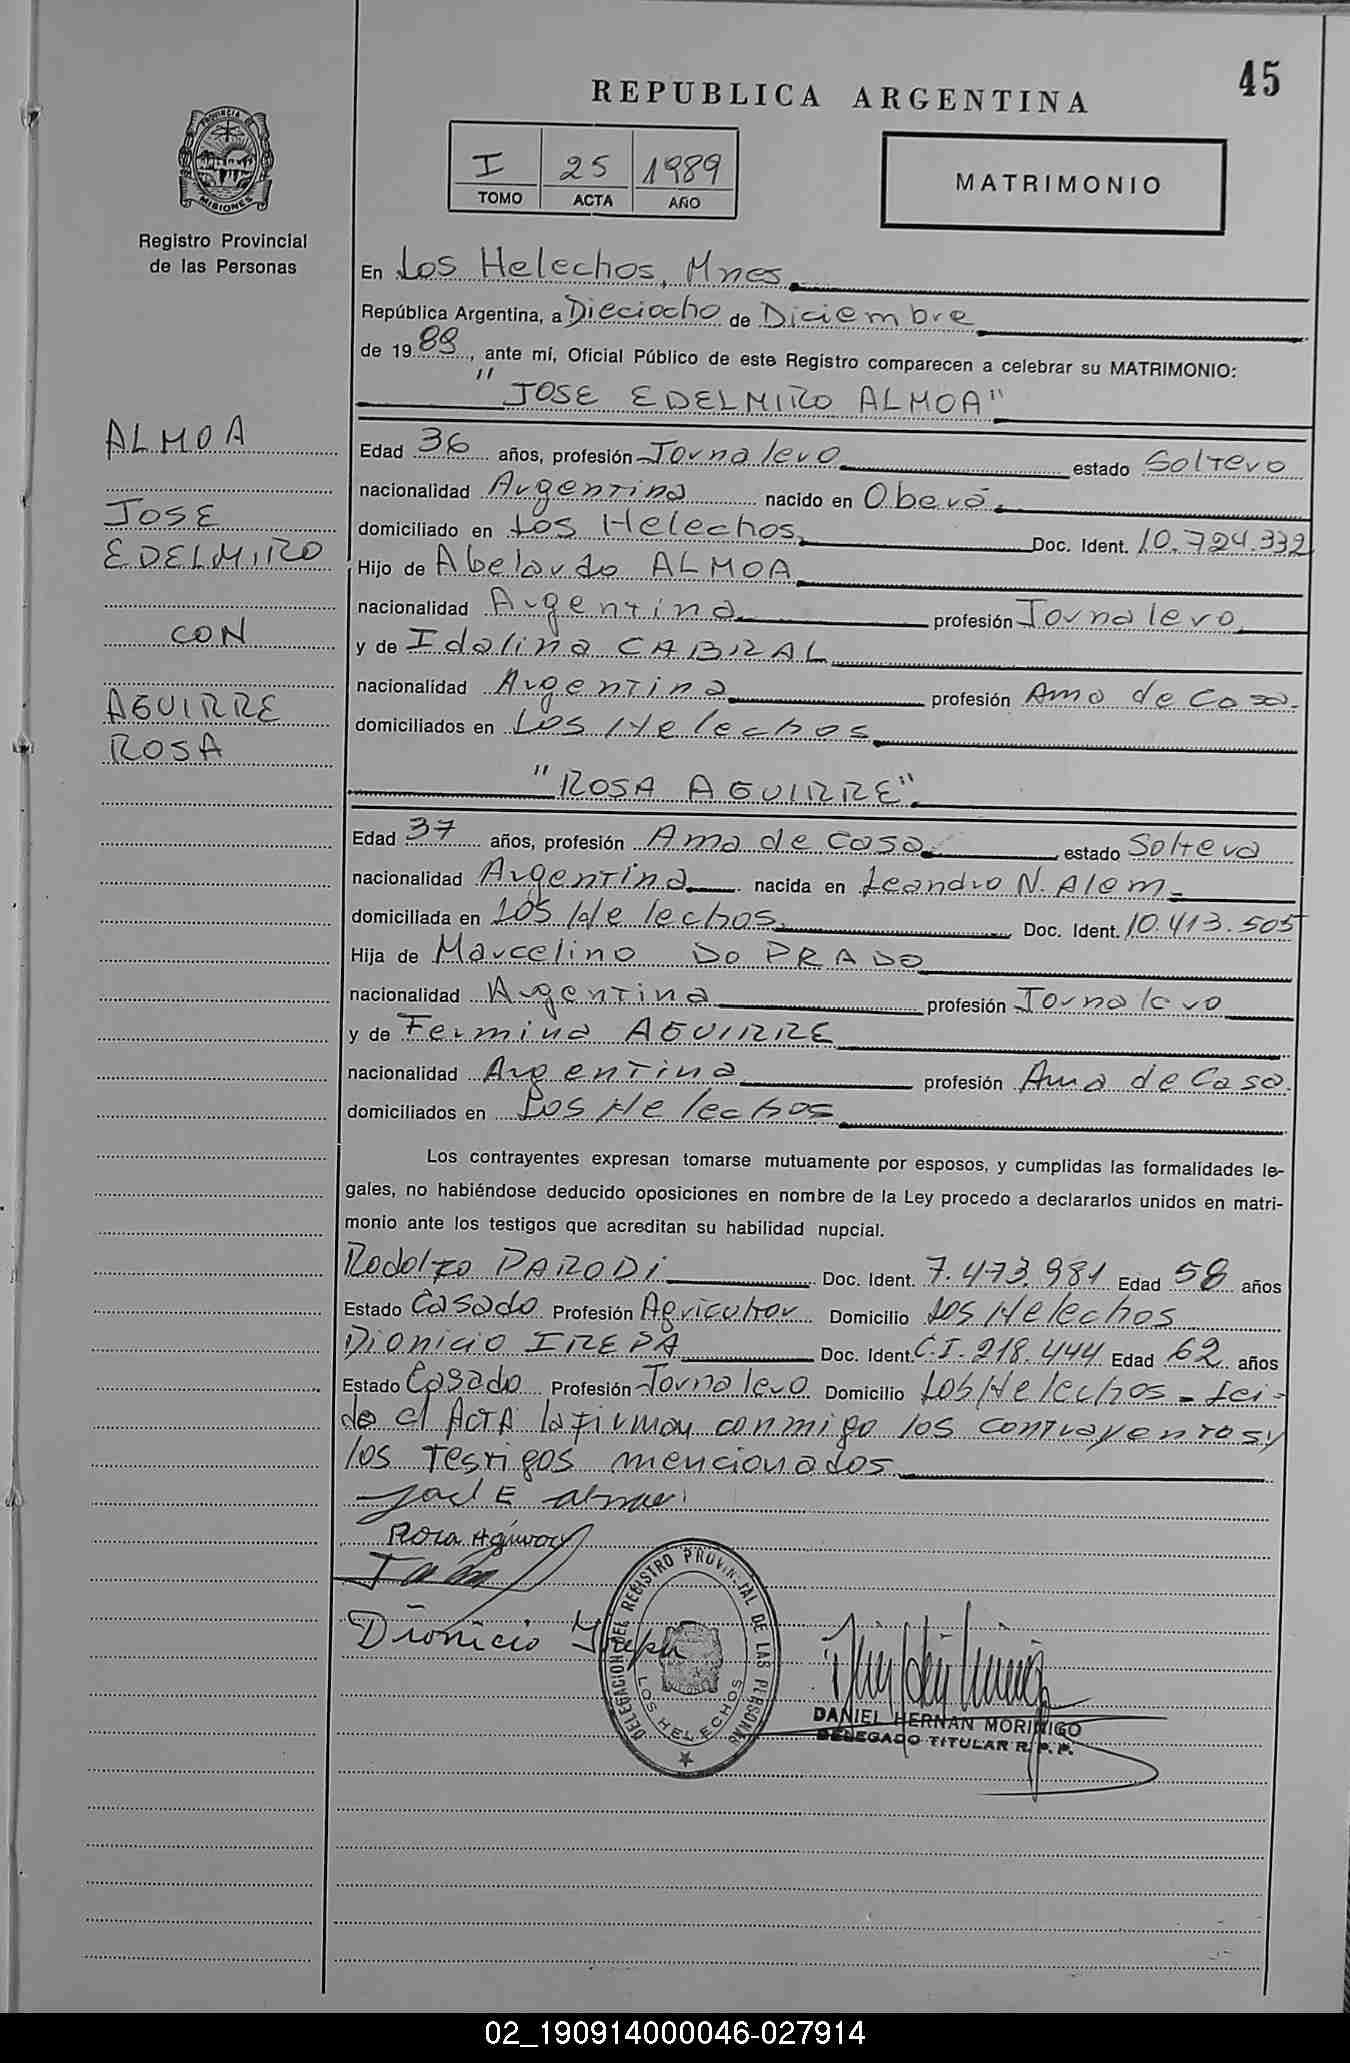 45
REPUBLICA ARGENTINA
PROVINCIA DE
MISIONES
Registro Provincial
de las Personas
I 25 1989
TOMO ACTA AÑO
MATRIMONIO
En Los Helechos, Mnes.
República Argentina, a Dieciocho de Diciembre
de 1989, ante mí, Oficial Público de este Registro comparecen a celebrar su MATRIMONIO:
"JOSE EDELMIRO ALMOA"
ALMOA
JOSE
EDELMIRO
CON
AGUIRRE
ROSA
Edad 36 años, profesión Jornalero estado Soltero
nacionalidad Argentina nacido en Oberá.
domiciliado en Los Helechos. Doc. Ident. 10.724.332
Hijo de Abelardo ALMOA
nacionalidad Argentina profesión Jornalero
y de Idalina CABRAL
nacionalidad Argentina profesión Ama de Casa.
domiciliados en Los Helechos
"ROSA AGUIRRE"
Edad 37 años, profesión Ama de Casa estado Soltera
nacionalidad Argentina nacida en Leandro N. Alem.
domiciliada en Los Helechos. Doc. Ident. 10.413.505
Hija de Marcelino DO PRADO
nacionalidad Argentina profesión Jornalero
y de Fermina AGUIRRE
nacionalidad Argentina profesión Ama de Casa.
domiciliados en Los Helechos
Los contrayentes expresan tomarse mutuamente por esposos, y cumplidas las formalidades le-
gales, no habiéndose deducido oposiciones en nombre de la Ley procedo a declararlos unidos en matri-
monio ante los testigos que acreditan su habilidad nupcial.
Rodolfo PARODI Doc. Ident. 7.473.981 Edad 58 años
Estado Casado Profesión Agricultor Domicilio Los Helechos
Dionicio IREPA Doc. Ident. C.I. 218.444 Edad 62 años
Estado Casado Profesión Jornalero Domicilio Los Helechos - Lei-
do el ACTA la firman conmigo los contrayentes y
los testigos mencionados
Rosa Aguirre
Dionicio Yrepa
DELEGACION DEL REGISTRO PROVINCIAL DE LAS PERSONAS
LOS HELECHOS
DANIEL HERNAN MORINIGO
DELEGADO TITULAR R. P. P.
02_190914000046-027914